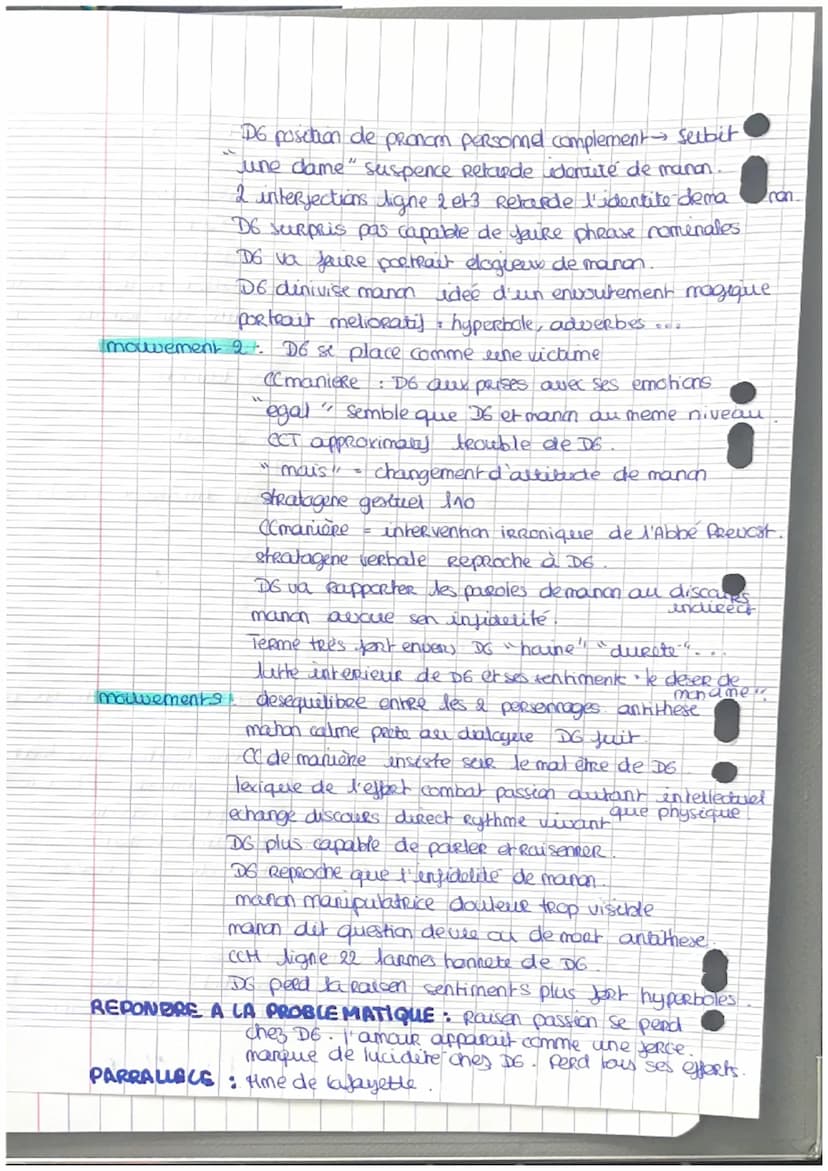 DG position de pronom personnel complement → subit
"une dame" suspence retarde identité de manon.
2 interjections ligne 2 et 3 Retarde l'identite dema non.
DG surpris pas capable de faire phrase nominales
DG va faire portrait elogieux de manon.
DG dinivise manon idée d'un envoutement magique
portrait melioratif : hyperbole, adverbes ...
mouvement 2 : DG se place comme une victime
CCmaniere : DG aux prises avec ses emotions
"egal" semble que DG et manon au meme niveau.
CCT approximatif trouble de DG.
"mais" = changement d'attitude de manon
stratagene gestuel l10
CCmanière = intervention irronique de l'Abbé Prevost.
stratagene verbale reproche à DG.
DG va rapporter les paroles de manon au discours indirect
manon avoue son infidelité.
Terme très fort envers DG "haine" "dureté"...
lutte interieur de DG et ses sentiments : le deser de mon ame".
mouvement 3 desequilibre entre les 2 personnages antithese
manon calme prete au dialogue DG fuit.
CC de manière insiste sur le mal être de DG
lexique de l'effort combat passion autant intellectuel que physique
echange discours direct rythme vivant
DG plus capable de parler et raisonner.
DG Reproche que l'infidelité de manon.
manon manipulatrice douleur trop visible
manon dit question de vie ou de mort antithese.
CCM ligne 22 larmes honnete de DG.
DG perd la raison sentiments plus fort hyperboles.
REPONDRE A LA PROBLEMATIQUE : Raison passion se perd
chez DG. l'amour apparait comme une force.
manque de lucidité chez DG. Perd tous ses efforts.
PARRALLELE : Mme de lafayette.